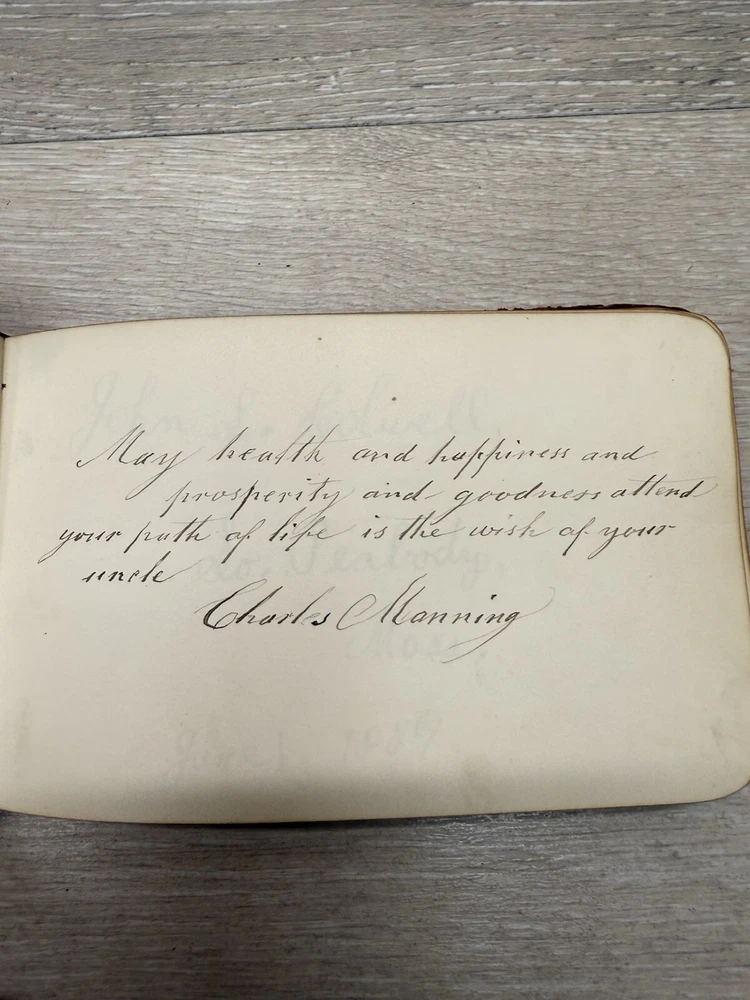 May health and happiness and
prosperity and goodness attend
your path of life is the wish of your
uncle
Charles Manning